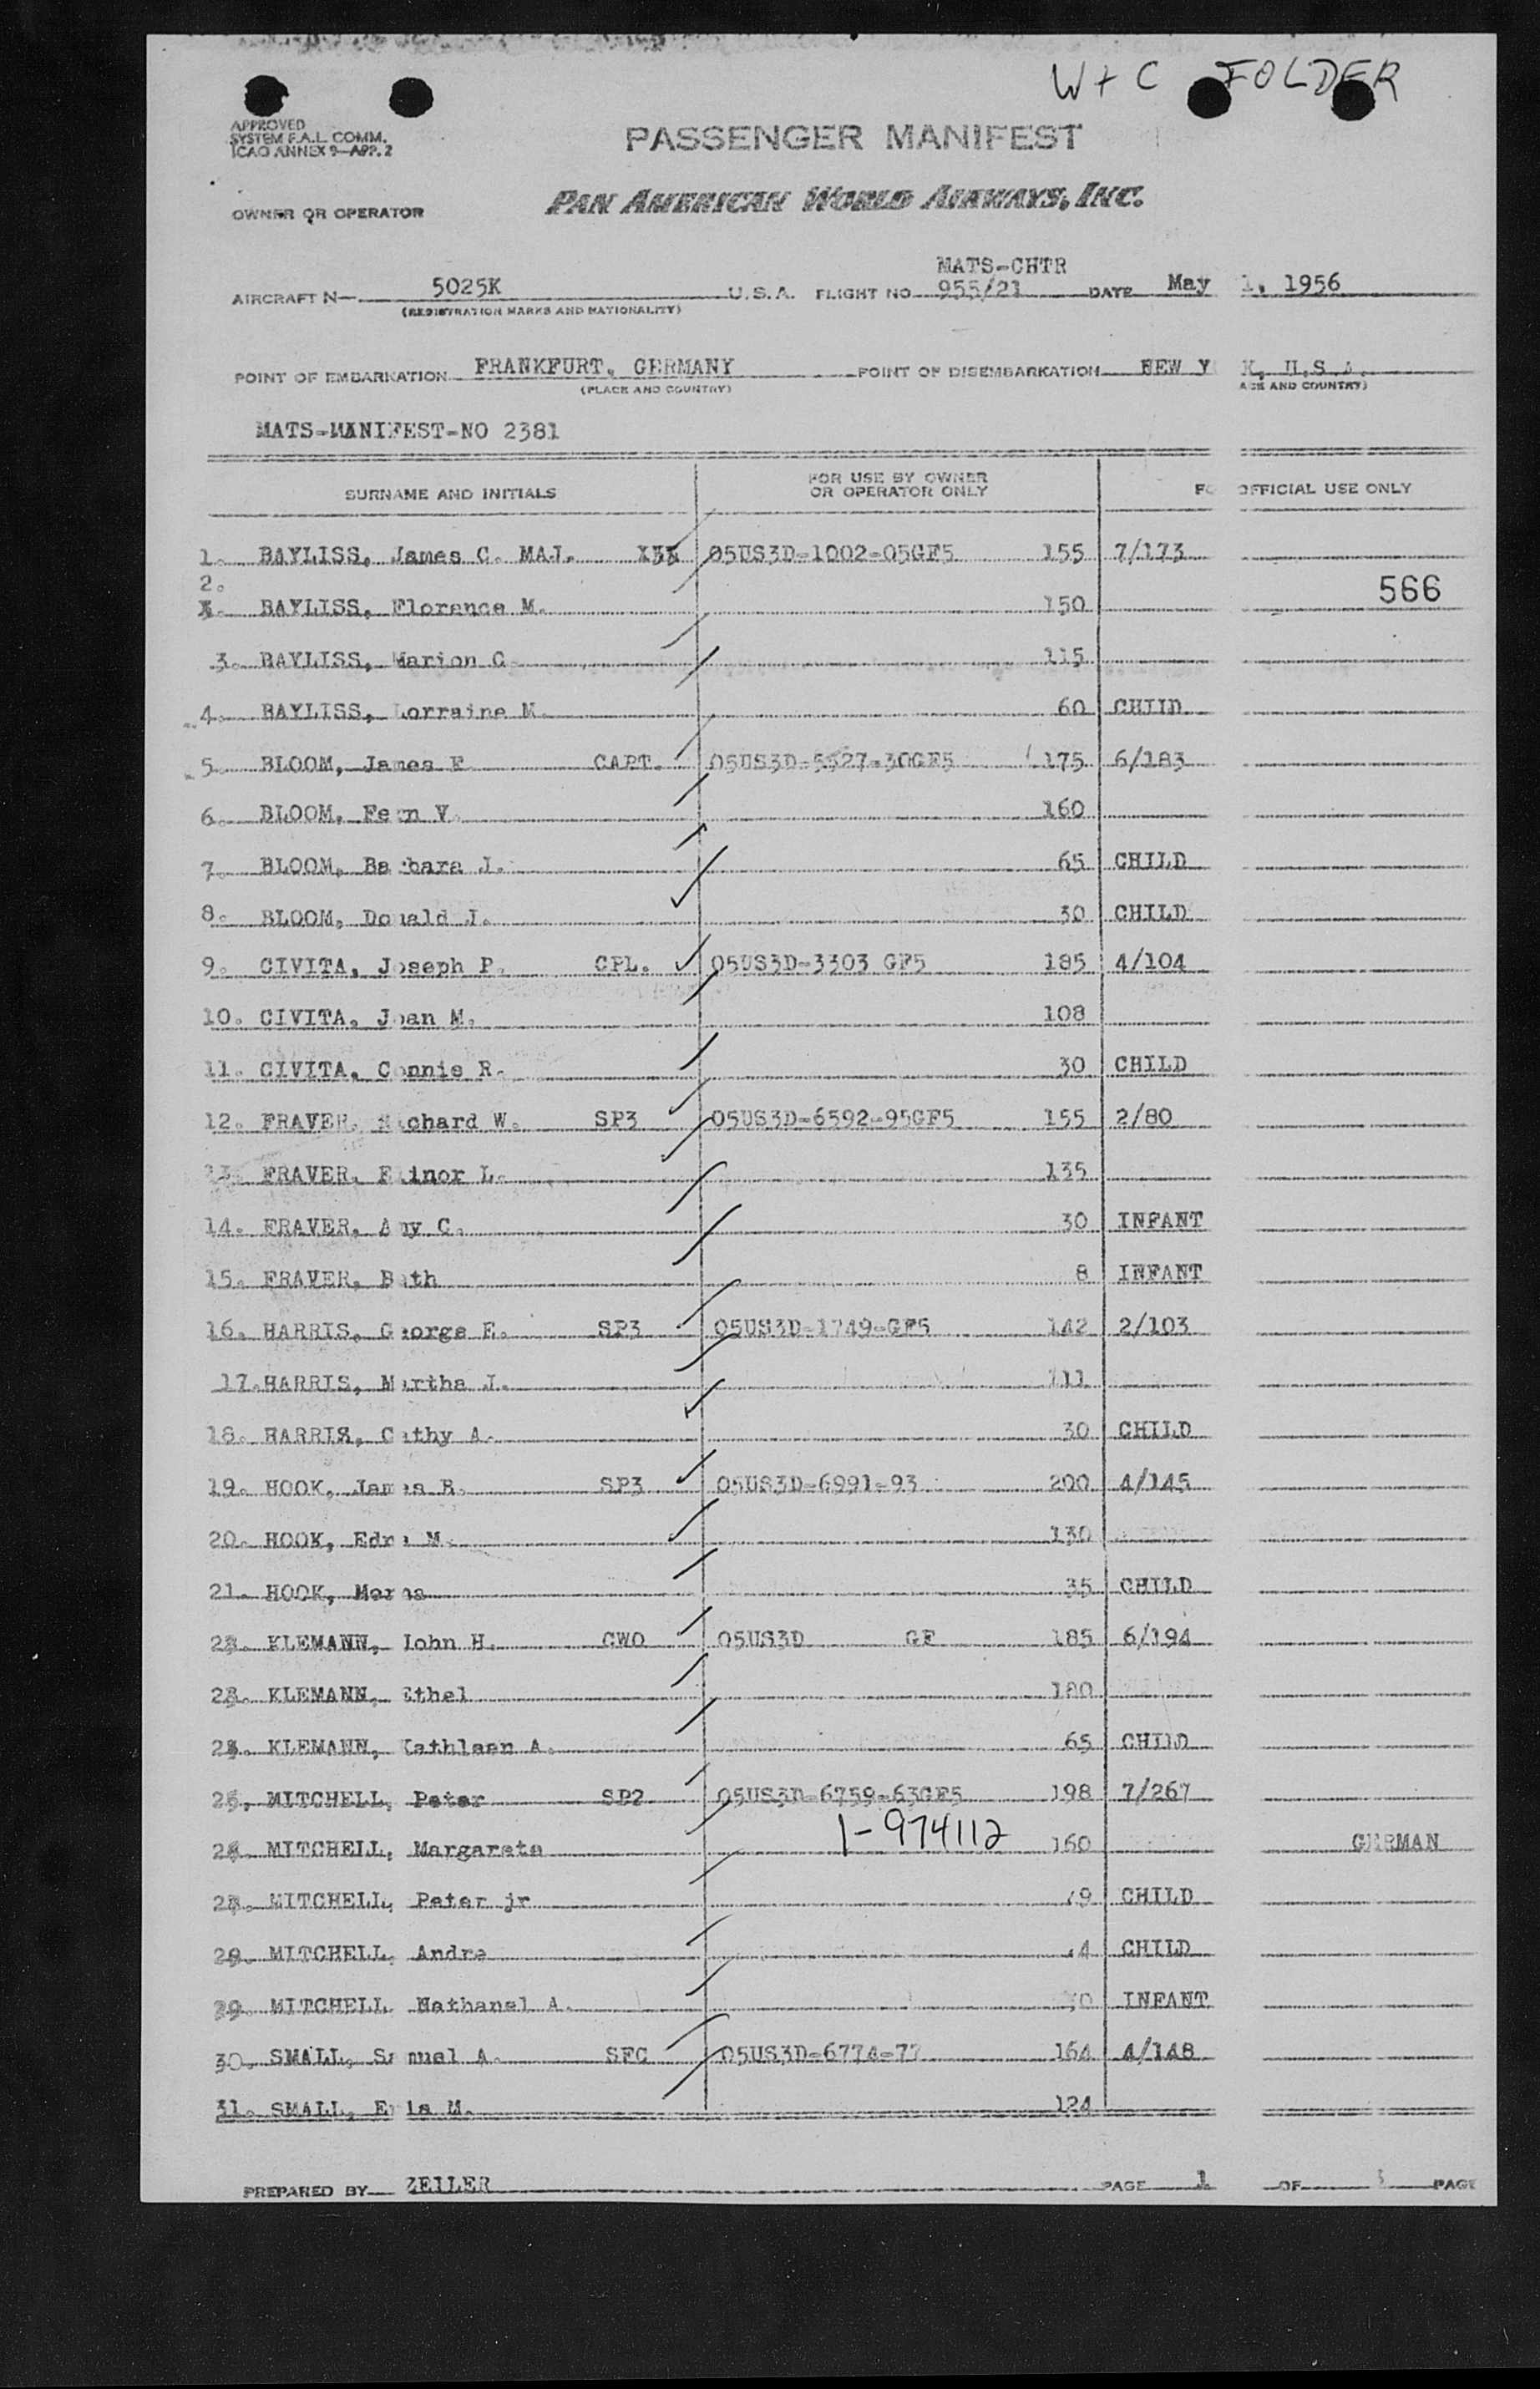 W + C FOLDER
APPROVED
SYSTEM F.A.L. COMM.
ICAO ANNEX 9—APP. 2
PASSENGER MANIFEST
OWNER OR OPERATOR PAN AMERICAN WORLD AIRWAYS, INC.
MATS-CHTR
AIRCRAFT N— 5025K U.S.A. FLIGHT NO 955/21 DATE May 1, 1956
(REGISTRATION MARKS AND NATIONALITY)
POINT OF EMBARKATION FRANKFURT, GERMANY POINT OF DISEMBARKATION NEW Y K, U.S.A.
(PLACE AND COUNTRY) ACE AND COUNTRY)
MATS-MANIFEST-NO 2381
SURNAME AND INITIALS FOR USE BY OWNER OR OPERATOR ONLY FO OFFICIAL USE ONLY
1. BAYLISS, James C. MAJ. 05US3D-1002-05GF5 155 7/173
2. BAYLISS, Florence M. 150 566
3. BAYLISS, Marion C. 115
4. BAYLISS, Lorraine M. 60 CHIID
5. BLOOM, James F. CAPT. 05US3D-5527-30GF5 175 6/183
6. BLOOM, Fern V. 160
7. BLOOM, Barbara J. 65 CHILD
8. BLOOM, Donald J. 30 CHILD
9. CIVITA, Joseph P. CPL. 05US3D-3303 GF5 185 4/104
10. CIVITA, Joan M. 108
11. CIVITA, Connie R. 30 CHILD
12. FRAVER, Richard W. SP3 05US3D-6592-95GF5 155 2/80
13. FRAVER, Elinor L. 135
14. FRAVER, Amy C. 30 INFANT
15. FRAVER, Beth 8 INFANT
16. HARRIS, George E. SP3 05US3D-1749-GF5 142 2/103
17. HARRIS, Martha J. 111
18. HARRIS, Cathy A. 30 CHILD
19. HOOK, James R. SP3 05US3D-6991-93 200 4/145
20. HOOK, Edna M. 130
21. HOOK, 35 CHILD
22. KLEMANN, John H. CWO 05US3D GF 185 6/194
23. KLEMANN, Ethel 180
24. KLEMANN, Kathleen A. 65 CHILD
25. MITCHELL, Peter SP2 05US3D-6759-63GF5 198 7/267
26. MITCHELL, Margarete 1-974112 160 GERMAN
27. MITCHELL, Peter jr CHILD
28. MITCHELL, Andre CHILD
29. MITCHELL Nathanel A. INFANT
30. SMALL, Samuel A. SFC 05US3D-6774-77 164 4/148
31. SMALL, M. 124
PREPARED BY ZEILER PAGE 1 OF PAGE